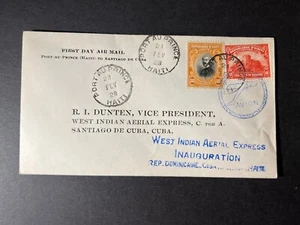 FIRST DAY AIR MAIL
PORT-AU-PRINCE (HAITI) TO SANTIAGO DE CUBA
PORT AU PRINCE
27
FEV
28
HAITI
PORT AU PRINCE
27
FEV
28
HAITI
AVION
R. I. DUNTEN, VICE PRESIDENT,
WEST INDIAN AERIAL EXPRESS, C. POR A.
SANTIAGO DE CUBA, CUBA.
WEST INDIAN AERIAL EXPRESS
INAUGURATION
REP. DOMINICANA, CUBA